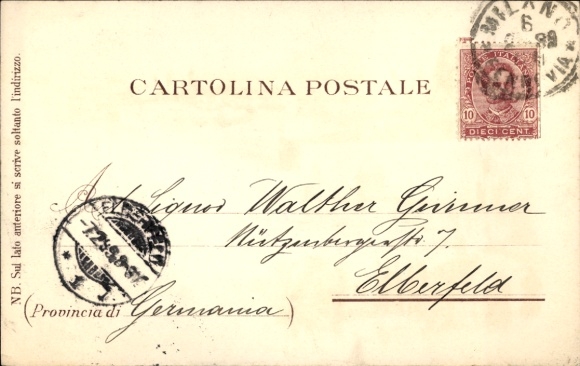 MILANO
6
POSTE ITALIANE
10 10
DIECI CENT.
CARTOLINA POSTALE
NB. Sul lato anteriore si scrive soltanto l'indirizzo.
Al Signor Walther Girmer
Nützenbergerstr 7
Elberfeld
(Provincia di Germania)
ELBERFELD
1 1